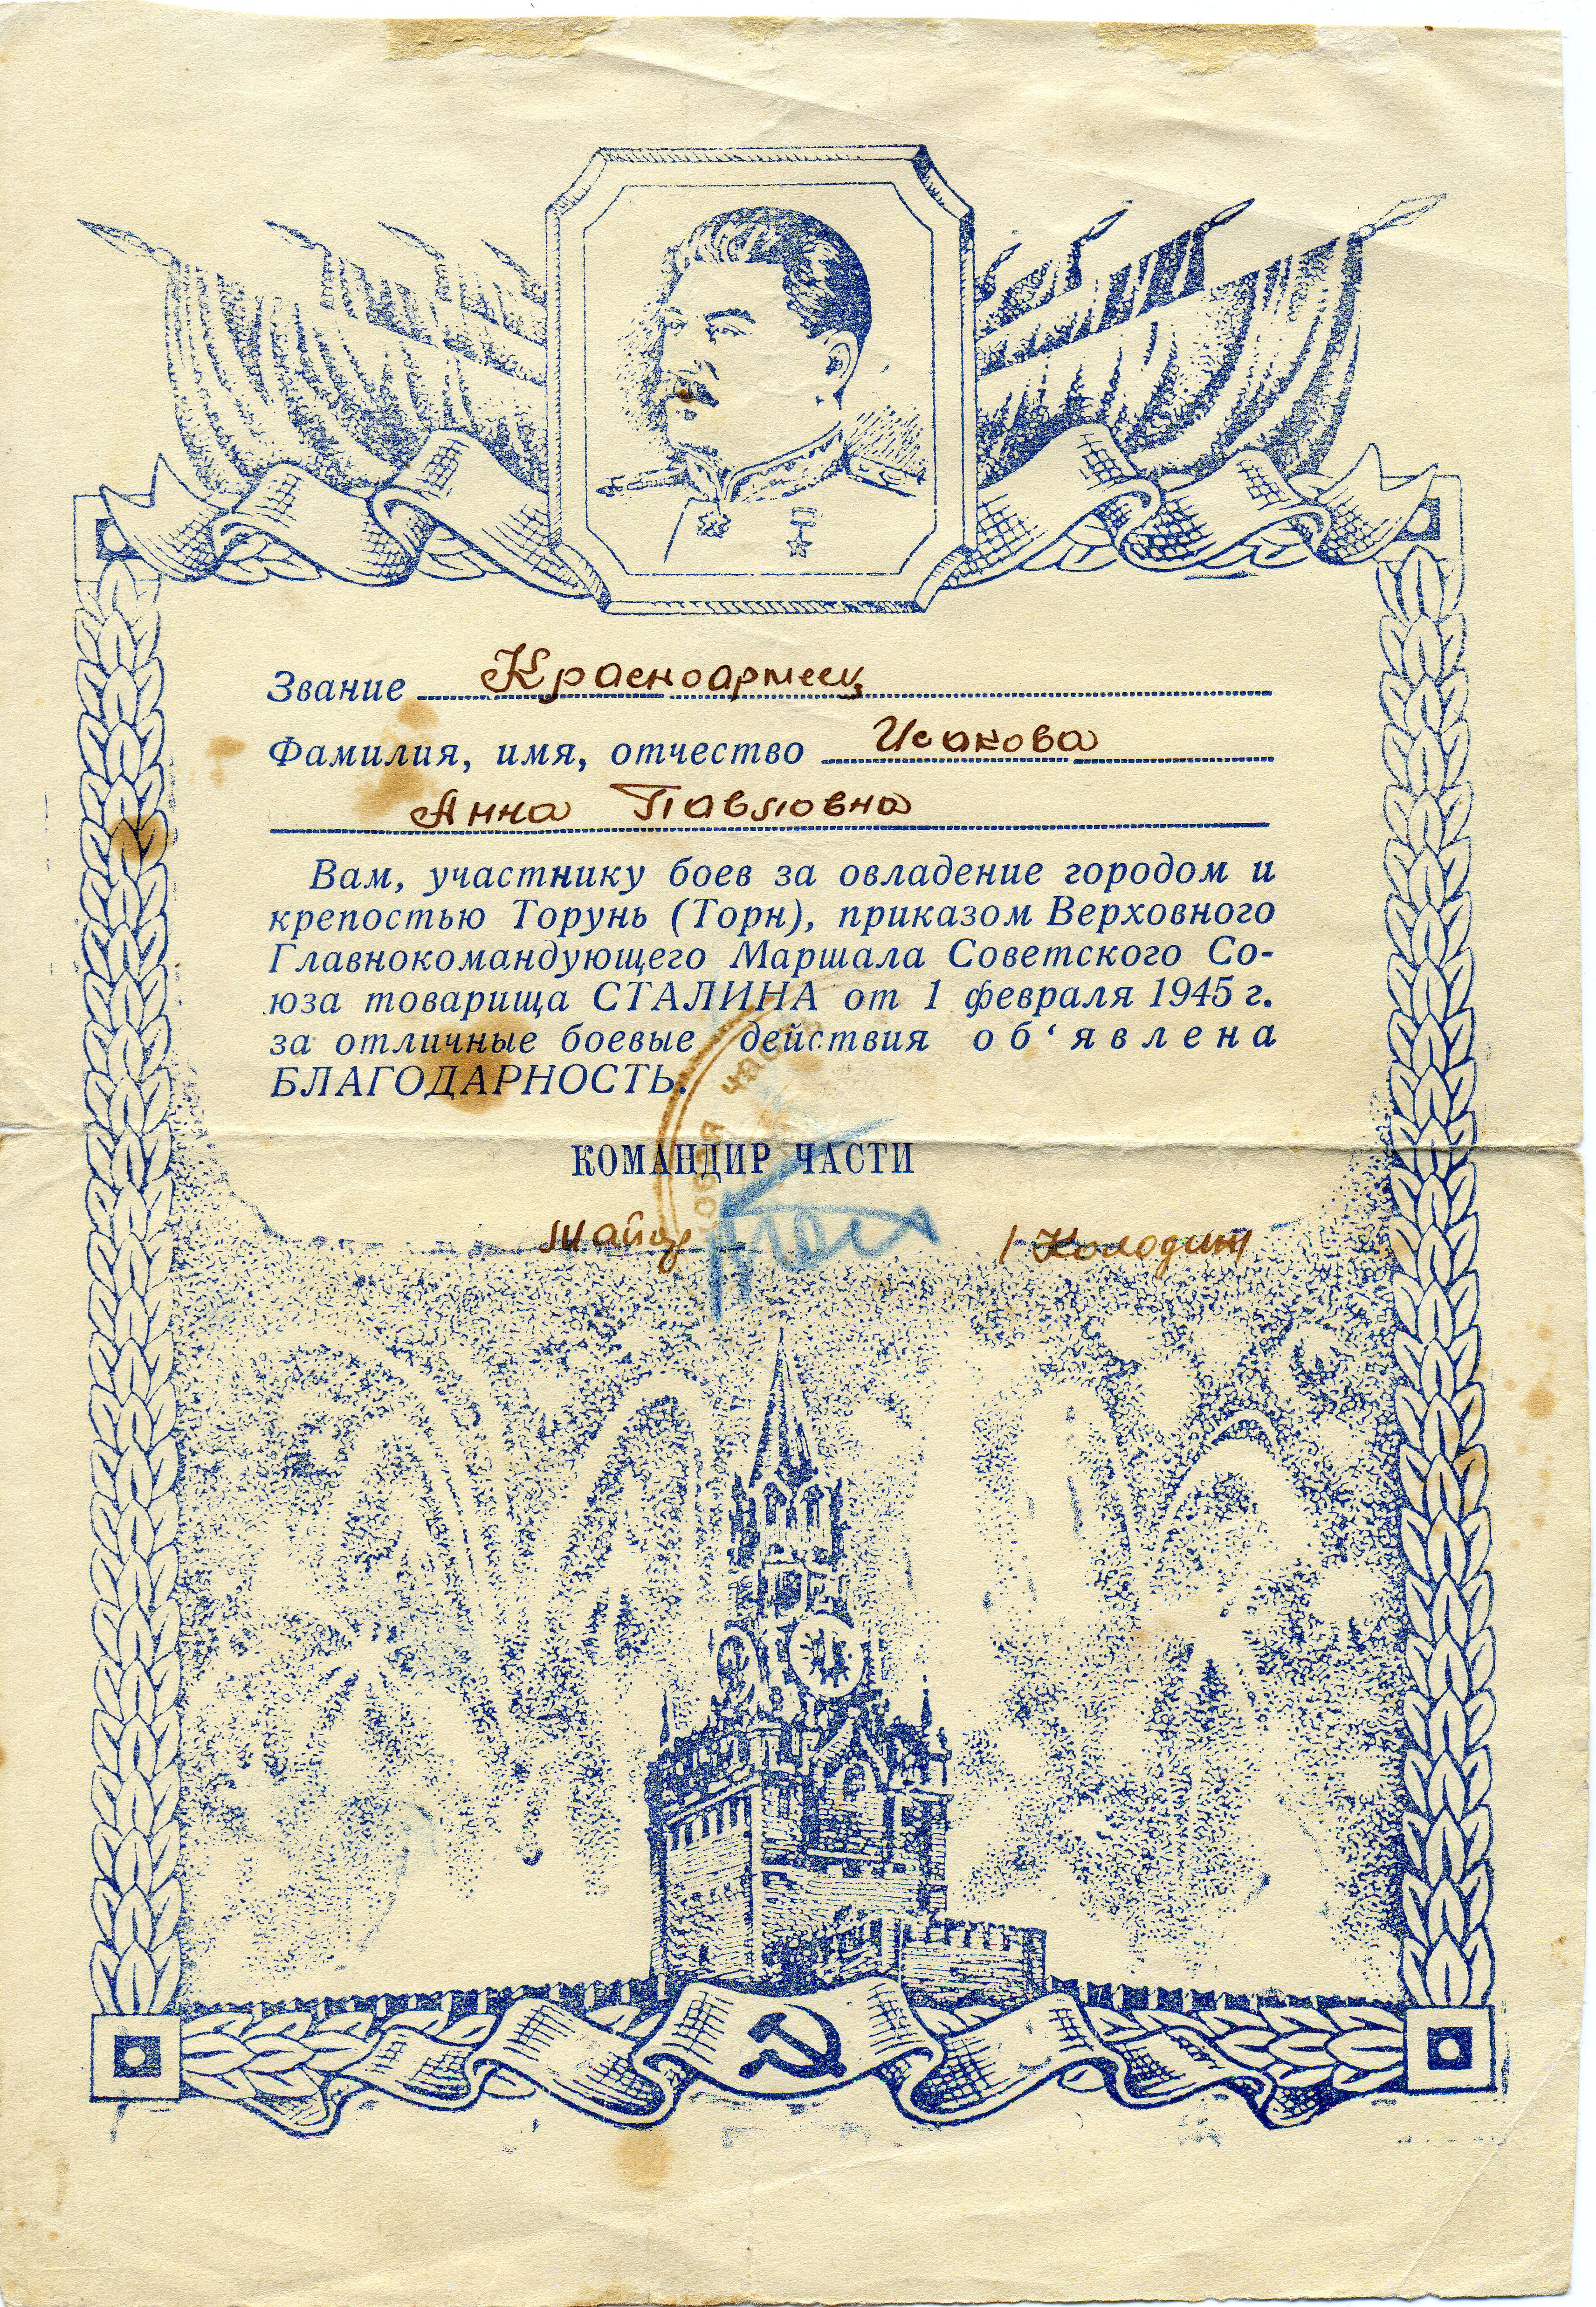 Звание Красноармеец
Фамилия, имя, отчество Исакова
Анна Павловна
Вам, участнику боев за овладение городом и
крепостью Торунь (Торн), приказом Верховного
Главнокомандующего Маршала Советского Со-
юза товарища СТАЛИНА от 1 февраля 1945 г.
за отличные боевые действия об‘явлена
БЛАГОДАРНОСТЬ.
КОМАНДИР ЧАСТИ
Майор / Колодит